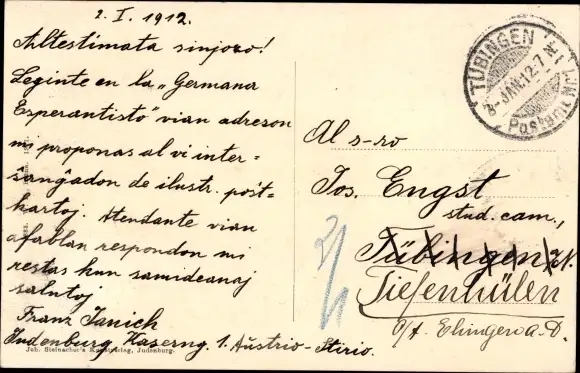 2. I. 1912.
Altestimata sinjoro!
Leginte en la „Germana
Esperantisto” vian adreson
mi proponas al vi inter=
ŝanĝadon de ilustr. poŝt=
kartoj. Atendante vian
afablan respondon mi
restas kun samideanaj
salutoj
Franz Janich
Judenburg, Kaserng. 1. Aŭstrio-Stirio.
Joh. Steinacher's Kunstverlag, Judenburg.
TÜBINGEN
8-JAN.12.7
Al s-ro
Jos. Engst
stud. cam.,
Tübingen
Tiefenhülen
Ehingen a. D.